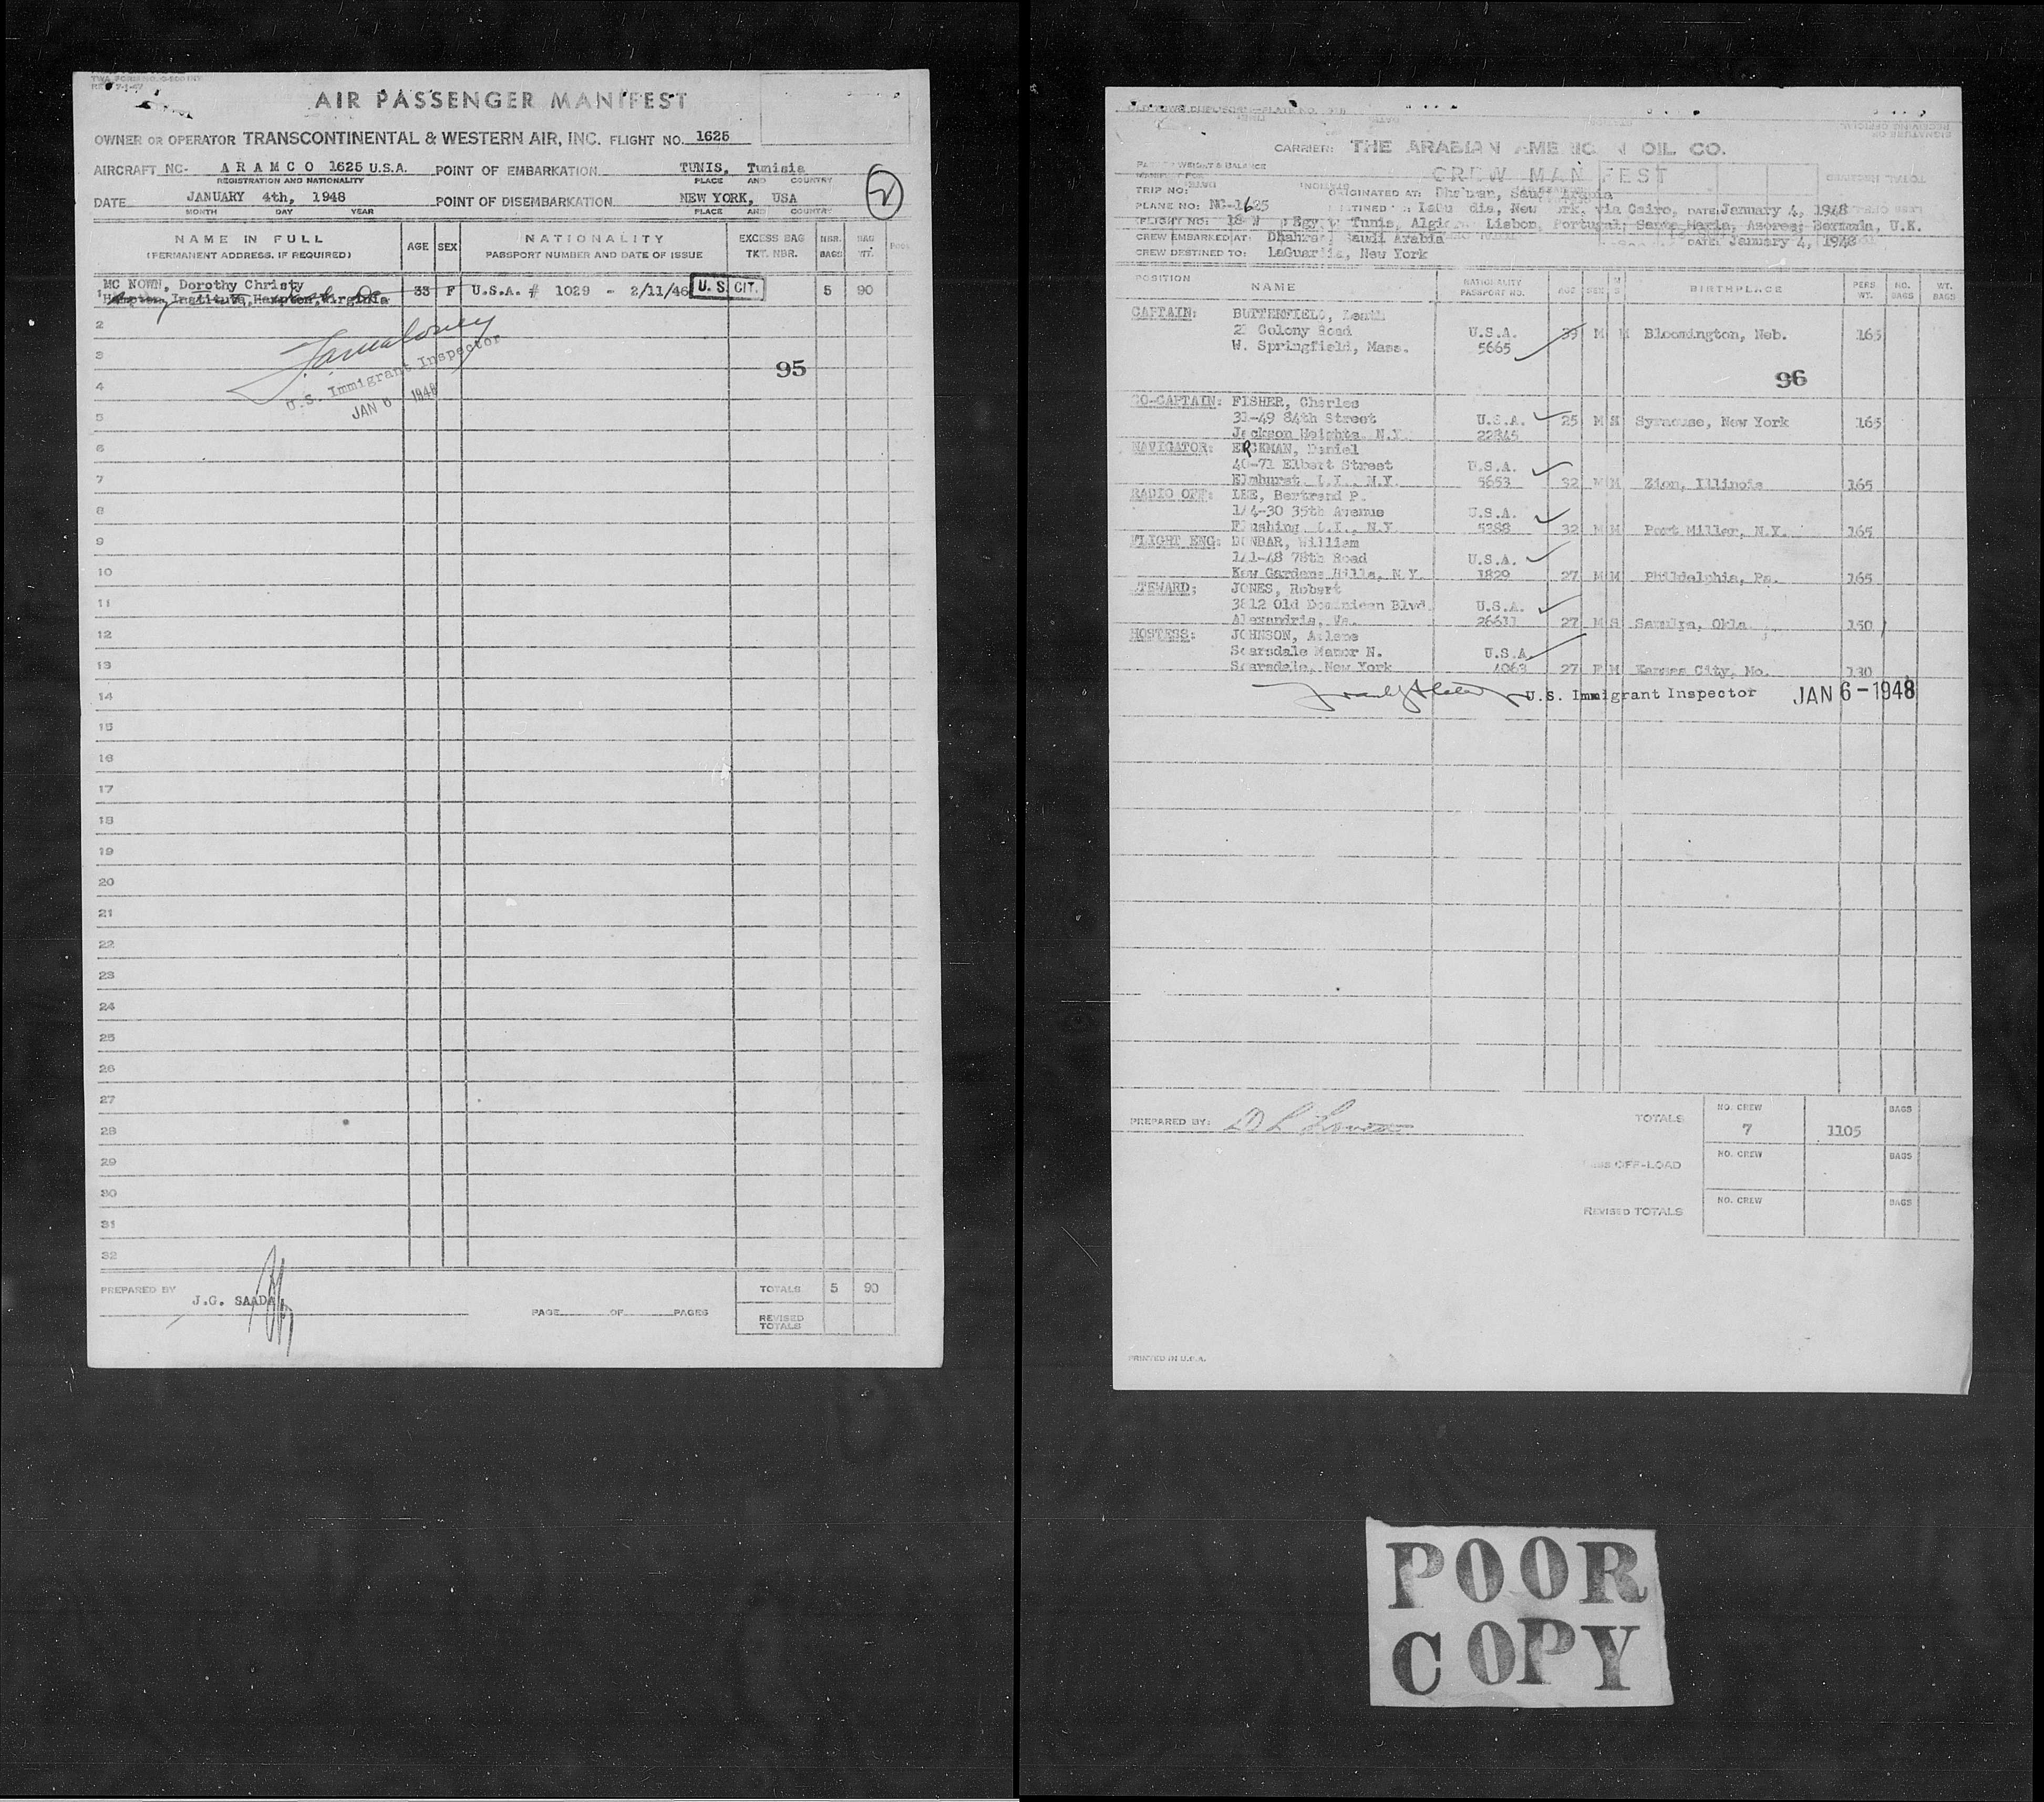 TWA FORM NO.
AIR PASSENGER MANIFEST
OWNER OR OPERATOR TRANSCONTINENTAL & WESTERN AIR, INC. FLIGHT NO. 1625
AIRCRAFT NC- A R A M C O 1625 U.S.A. POINT OF EMBARKATION TUNIS, Tunisia
REGISTRATION AND NATIONALITY PLACE AND COUNTRY
DATE JANUARY 4th, 1948 POINT OF DISEMBARKATION NEW YORK, USA
MONTH DAY YEAR PLACE AND COUNTRY
2
NAME IN FULL AGE SEX NATIONALITY EXCESS BAG NBR. BAG
(PERMANENT ADDRESS, IF REQUIRED) PASSPORT NUMBER AND DATE OF ISSUE TKT. NBR. BAGS WT.
MC NOWN, Dorothy Christy
1 Hampton Institute, Hampton, Virginia 33 F U.S.A. # 1029 - 2/11/46 U. S. CIT. 5 90
2
3
U.S. Immigrant Inspector
95
4
JAN 6 1948
5
6
7
8
9
10
11
12
13
14
15
16
17
18
19
20
21
22
23
24
25
26
27
28
29
30
31
32
PREPARED BY J.G. SAADA
PAGE OF PAGES
TOTALS 5 90
REVISED TOTALS
CARRIER: THE ARABIAN AMERICAN OIL CO.
CREW MANIFEST
TRIP NO: ORIGINATED AT: Dhahran, Saudi Arabia
PLANE NO: NC-1625 New York, via Cairo, DATE: January 4, 1948
FLIGHT NO: Tunis, Lisbon, Portugal; Santa Maria, Azores; Bermuda, U.K.
CREW EMBARKED AT: Dhahran, Saudi Arabia DATE: January 4, 1948
CREW DESTINED TO: LaGuardia, New York
POSITION NAME NATIONALITY PASSPORT NO. AGE SEX M S BIRTHPLACE PERS WT. NO. BAGS WT. BAGS
CAPTAIN: BUTTERFIELD,
Colony Road U.S.A. 39 M M Bloomington, Neb. 165
W. Springfield, Mass. 5665
96
CO-CAPTAIN: FISHER, Charles
33-49 84th Street U.S.A. 25 M M Syracuse, New York 165
Jackson Heights, N.Y. 22845
NAVIGATOR: ERCKMAN, Daniel
40-71 Elbert Street U.S.A.
Elmhurst L.I., N.Y. 5653 32 M M Zion, Illinois 165
RADIO OFF: LEE, Bertrand P.
144-30 35th Avenue U.S.A.
Flushing L.I., N.Y. 5388 32 M M Port Miller, N.Y. 165
FLIGHT ENG: DUNBAR, William
141-48 78th Road U.S.A.
Kew Gardens Hills, N.Y. 1829 27 M M Phildelphia, Pa. 165
STEWARD: JONES, Robert
3812 Old Dominican Blvd. U.S.A.
Alexandria, Va. 26611 27 M S Okla. 150
HOSTESS: JOHNSON, Arlene
Scarsdale Manor N. U.S.A.
Scarsdale, New York 4063 27 F M Kansas City, Mo. 130
U.S. Immigrant Inspector JAN 6 - 1948
PREPARED BY:
TOTALS NO. CREW 7 1105 BAGS
LESS OFF-LOAD NO. CREW BAGS
REVISED TOTALS NO. CREW BAGS
PRINTED IN U.S.A.
POOR
COPY